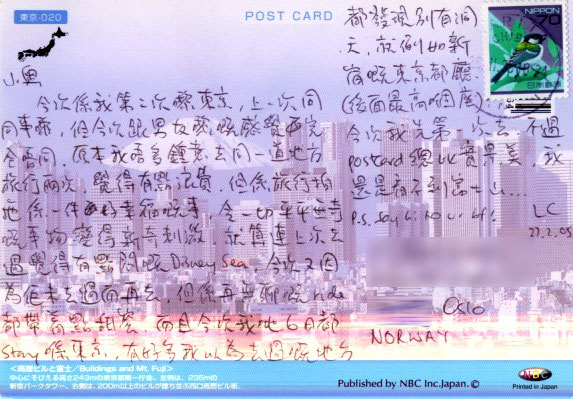 東京-020
POST CARD
小思
今次係我第二次嚟東京,上一次同
同事嚟,但今次跟男友嚟嘅感覺完
全唔同。原本我唔多鍾意去同一道地方
旅行兩次,覺得有點浪費。但係旅行
地係一件好幸福嘅事,令一切平平無奇
嘅事物變得新奇刺激,就算連上次去
過覺得有點悶嘅 Disney Sea,今次又因
為佢未去過而再去,但係再無聊嘅 ride
都帶着點甜蜜。而且今次我地6日都
stay 喺東京,有好多我以為去過嘅地方
都發現別有洞
天,就例如新
宿嘅東京都廳
(後面最高嗰座)
今次我先第一次去。不過
postcard 總比實景美,我
還是看不到富士山...
p.s. say hi to
LC
27.2.05
Oslo
NORWAY
NIPPON
70
日本郵便
<高層ビルと富士/Buildings and Mt. Fuji>
中心にそびえる高さ243mの東京都第一庁舎。左側は、235mの
新宿パークタワー。右側は、200m以上のビルが建ち並ぶ西口高層ビル街。
Published by NBC Inc.Japan. ©
NBC
Printed in Japan